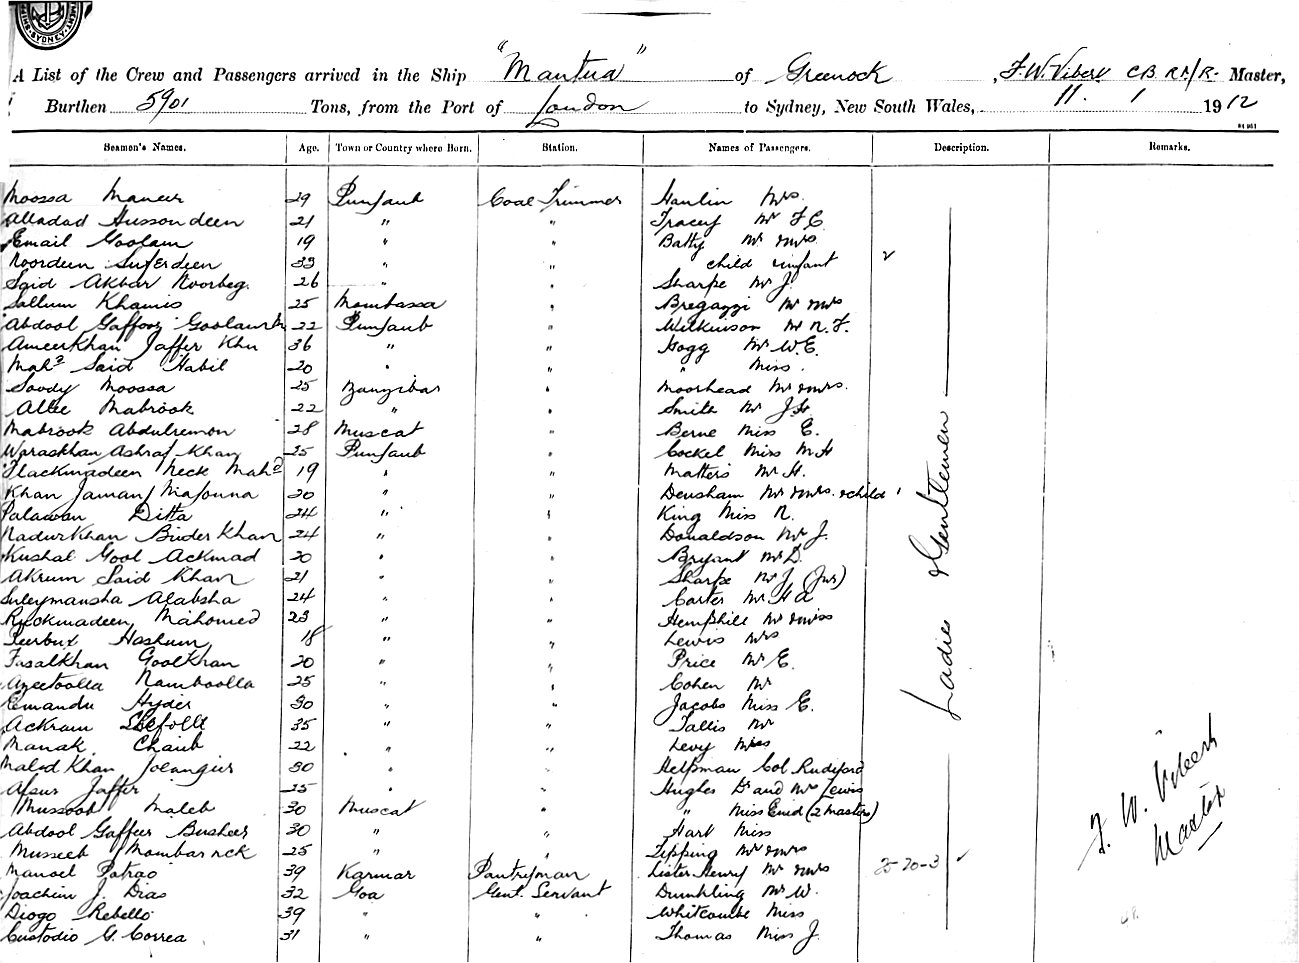 SYDNEY
A List of the Crew and Passengers arrived in the Ship "Mantua" of Greenock, F. W. Vibert CB RNR Master,
Burthen 5901 Tons, from the Port of London to Sydney, New South Wales, 11. 1 1912
Seamen's Names. Age. Town or Country where Born. Station. Names of Passengers. Description. Remarks.
Moossa 29 Punjaub Coal Trimmer Hanlin Mrs.
Alladad Hussondeen 21 " " Tracey Mr F C
Email Goolam 19 " " Batty Mr & Mrs
Noordeen Suferdeen 33 " " child & infant
Said Akbar Noorbeg. 26 " " Sharpe Mr J.
Sallum Khamis 25 Mombassa " Bregazzi Mr & Mrs
Abdool Gaffoor 22 Punjaub " Wilkinson Mr N. F.
Ameerkhan Jaffer Khn 36 " " Hogg Mr W. E.
Mahd Said Habil 20 " " " Miss.
Soody Moossa 25 Zanzibar " Moorhead Mr & Mrs.
Allee Mabrook 22 " " Smith Mr J. H
Mabrook Abdulremon 28 Muscat " Berne Miss E.
Waraskhan Ashraf Khan 25 Punjaub " Cockel Miss M. H
Neck Mahd 19 " " Matters Mr H.
Khan Jaman Majouna 20 " " Densham Mr & Mrs. & child
Palawan Ditta 24 " " King Miss N.
Nadurkhan Buder Khan 24 " " Donaldson Mr J.
Kushal Gool Ackmad 20 " " Bryant Mr D.
Akrum Said Khan 21 " " Sharpe Mr J (Jnr)
Suleymansha Alabsha 24 " " Carter Mr H A
Mahomed 23 " " Hemphill Mr & Miss
Peerbux Hashum 18 " " Lewis Mrs
Fasalkhan Goolkhan 20 " " Price Mr E.
Azeetoolla Namboolla 25 " " Cohen Mr
Emandu Hyder 30 " " Jacobs Miss E.
Ackram 35 " " Tallis Mr
Manak Chaib 22 " " Levy Miss
Maled Khan Joeangier 30 " " Helpman Col Rudiford
Afsur Jaffer 25 " " Hughes Dr and Mrs Lewis
Mussoob Maleb 30 Muscat " " Miss Enid (2 Masters)
Abdool Gaffeer Busheer 30 " " Hart Miss
Museeb 25 " " Tipping Mr & Mrs
Manoel Patrao 39 Karwar Pantryman Lister Henry Mr & Mrs 25-20-3
Joachim J. Dias 32 Goa Genl. Servant Dumbling Mr W.
Diogo Rebello 39 " " Whitcombe Miss
Custodio G. Correa 31 " " Thomas Miss J.
Ladies & Gentlemen
F. W. Vibert
Master